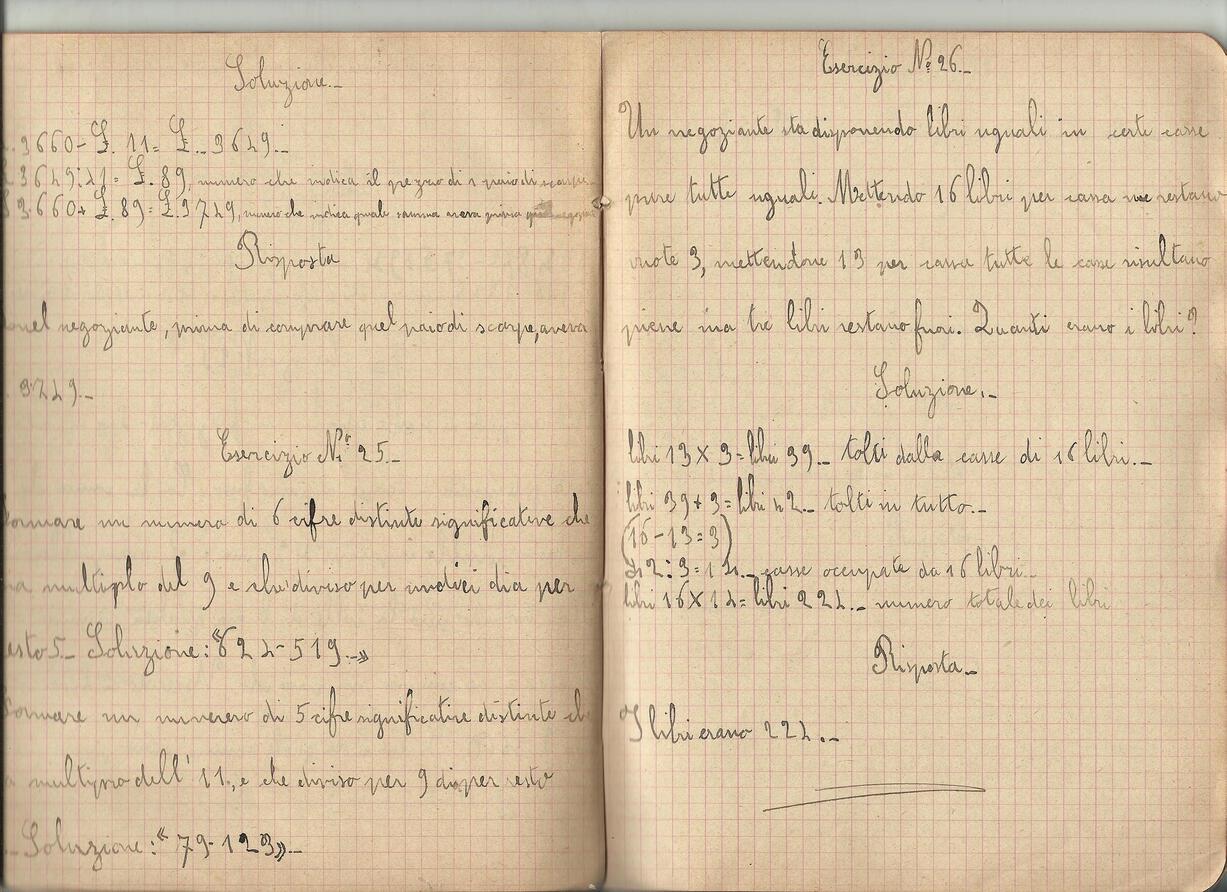 Soluzione.-
3660 - £. 11 = £. 3649.-
3649:41 = £. 89, numero che indica il prezzo di 1 paio di scarpe.
£ 3.660 + £. 89 = £. 3749, numero che indica quale somma aveva prima
Risposta
quel negoziante, prima di comprare quel paio di scarpe, aveva
3749.-
Esercizio N.º 25.-
Formare un numero di 6 cifre distinte significative che
multiplo del 9 e che diviso per undici dia per
resto 5.- Soluzione: «624-519.-»
Formare un numero di 5 cifre significative distinte che
multiplo dell' 11, e che diviso per 9 dia per resto
Soluzione: «79-123».-
Esercizio Nº 26.-
Un negoziante sta disponendo libri uguali in certe casse
pure tutte uguali. Mettendo 16 libri per cassa ne restano
vuote 3, mettendone 13 per cassa tutte le casse risultano
piene ma tre libri restano fuori. Quanti erano i libri?
Soluzione.-
libri 13 X 3 = libri 39.- tolti dalla casse di 16 libri.-
libri 39 + 3 = libri 42.- tolti in tutto.-
(16 - 13 = 3)
42 : 3 = 14.- casse occupate da 16 libri.-
libri 16 X 14 = libri 224.- numero totale dei libri
Risposta.-
I libri erano 224.-